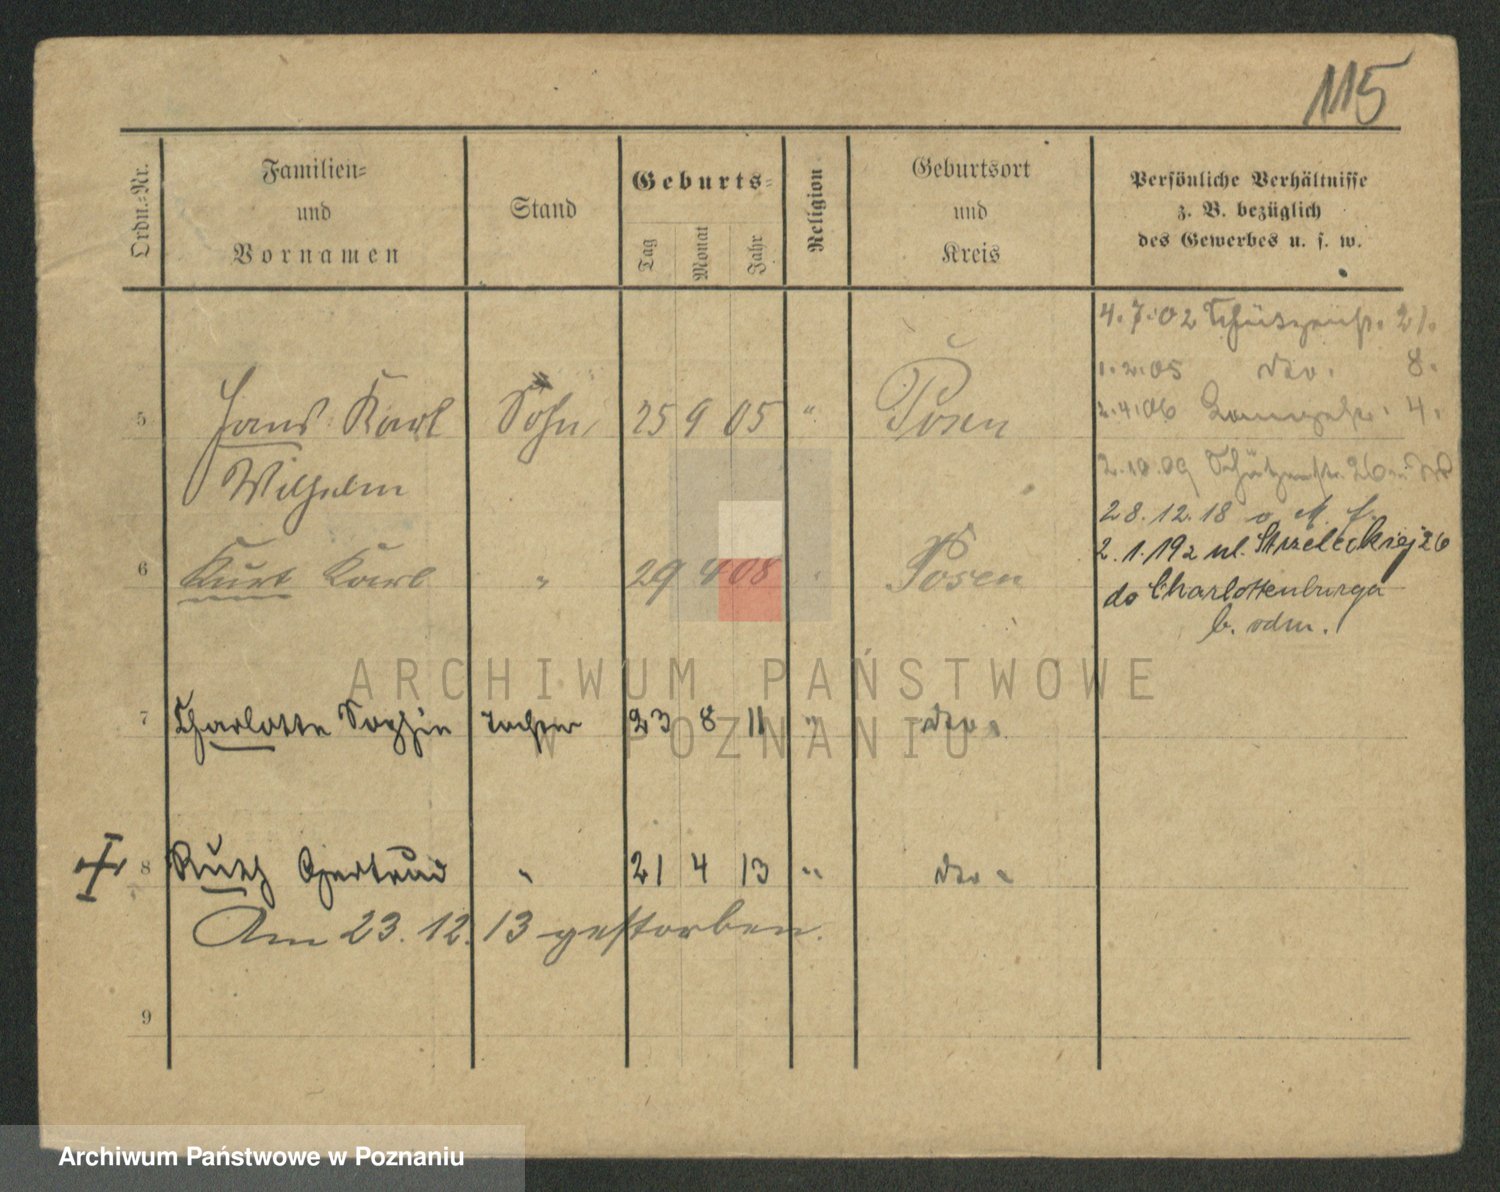 115
Ordn.-Nr.
Familien-
und
Vornamen
Stand
Geburts-
Tag
Monat
Jahr
Religion
Geburtsort
und
Kreis
Persönliche Verhältnisse
z. B. bezüglich
des Gewerbes u. s. w.
4.7.02 Schützenstr. 21.
1.2.05 dto. 8.
2.4.06 4.
2.10.09 Schützenstr. 26
28.12.18
2.1.192 ul. Strzeleckiej 26
do Charlottenburga
b. odm.
5 Hans Karl Sohn 25 9 05 " Posen
Wilhelm
6 Kurt Karl " 29 4 08 " Posen
7 Charlotte Sophie Tochter 23 8 11 " dto.
8 Ruth Gertrud " 21 4 13 " dto.
Am 23.12.13 gestorben.
9
ARCHIWUM PAŃSTWOWE
W POZNANIU
Archiwum Państwowe w Poznaniu